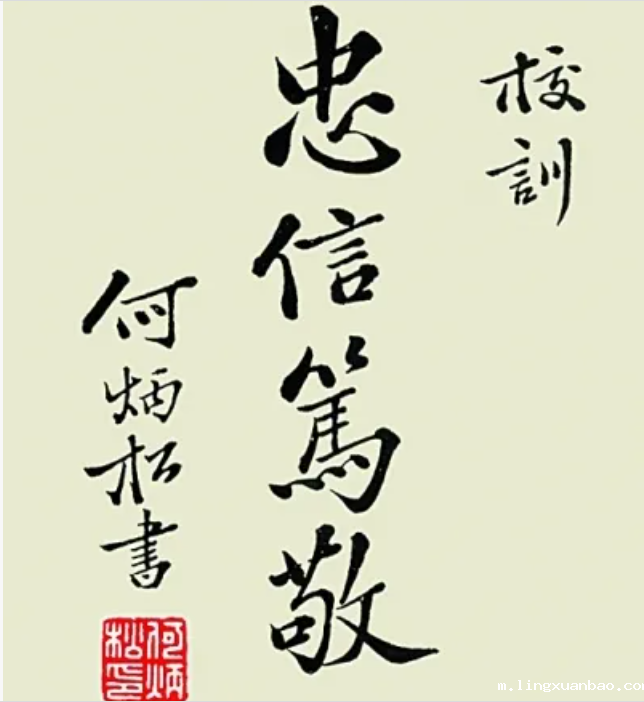 校訓
忠信篤敬
何炳松書
何炳松印
m.lingxuanbao.com